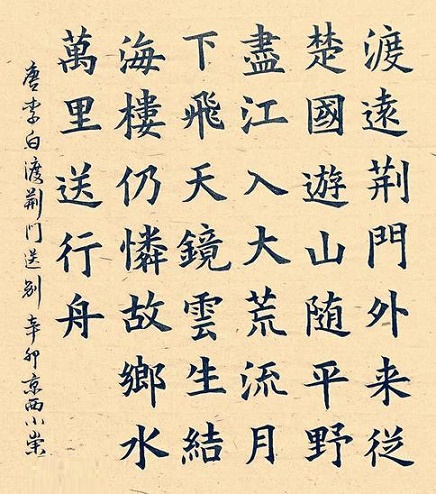 渡遠荆門外来従
楚國遊山随平野
盡江入大荒流月
下飛天鏡雲生結
海樓仍憐故鄉水
萬里送行舟
唐李白渡荆門送别 辛卯京西小崇